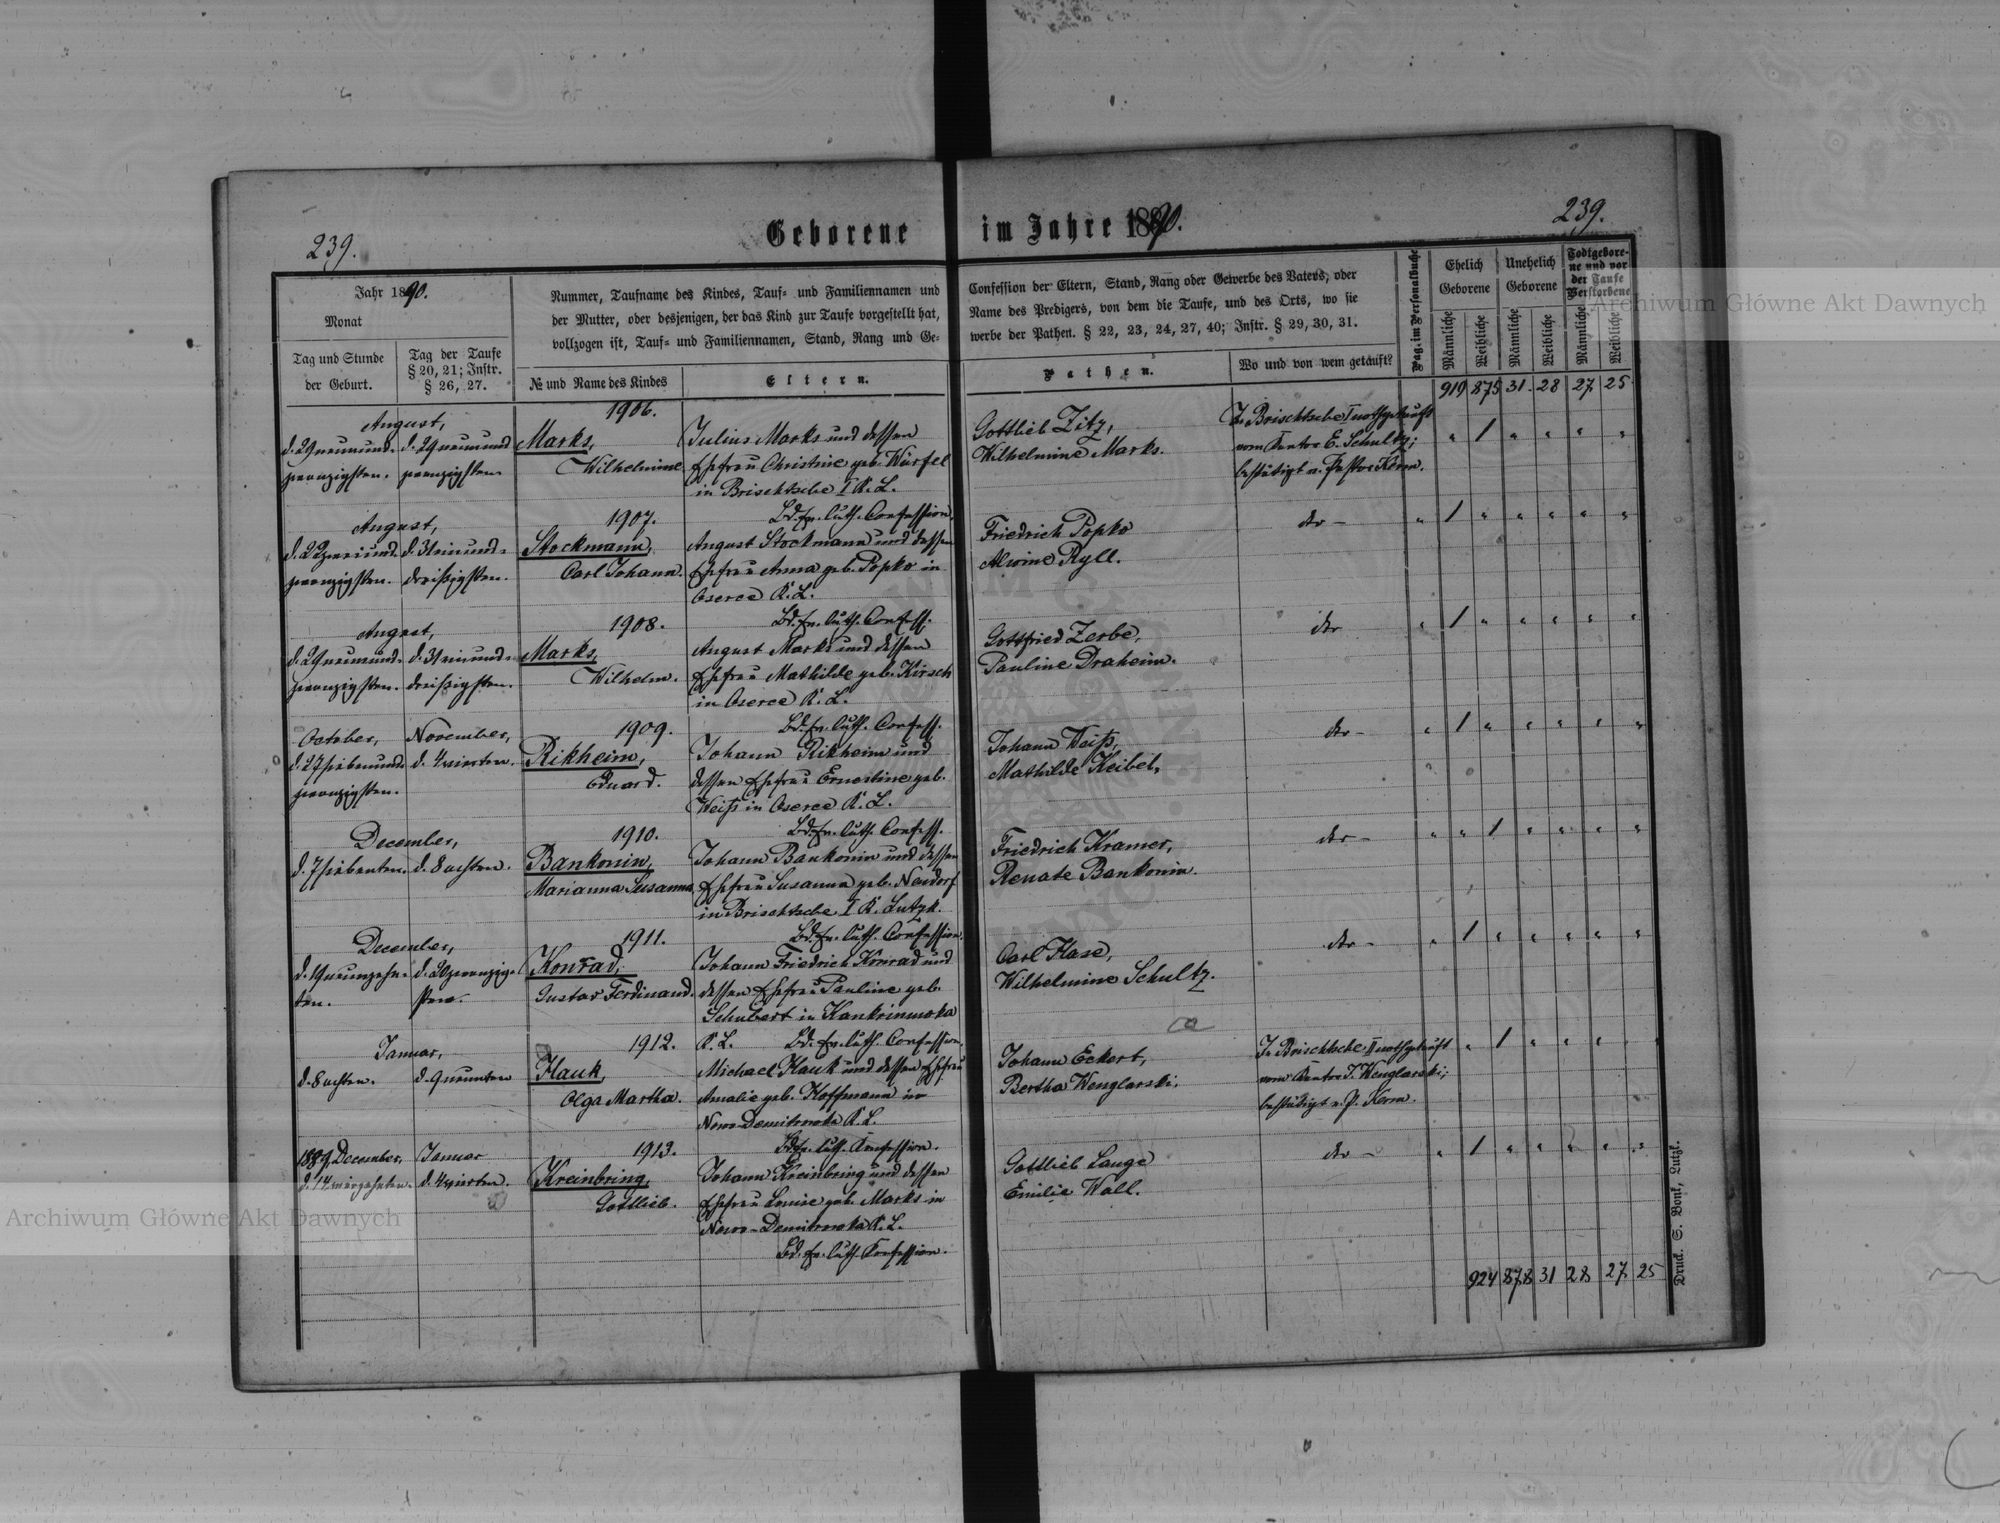 239.
Geborene im Jahre 1890.
239.
Jahr 1890.
Monat
Tag und Stunde
der Geburt.
Tag der Taufe
§ 20, 21; Instr.
§ 26, 27.
Nummer, Taufname des Kindes, Tauf- und Familiennamen und
der Mutter, oder desjenigen, der das Kind zur Taufe vorgestellt hat,
vollzogen ist, Tauf- und Familiennamen, Stand, Rang und Ge-
№ und Name des Kindes
Eltern.
Confession der Eltern, Stand, Rang oder Gewerbe des Vaters, oder
Name des Predigers, von dem die Taufe, und des Orts, wo sie
werbe der Pathen. § 22, 23, 24, 27, 40; Instr. § 29, 30, 31.
Pathen.
Wo und von wem getauft?
Pag. im Personalbuche
Ehelich
Geborene
Unehelich
Geborene
Todtgebore-
ne und vor
der Taufe
Verstorbene
Männliche
Weibliche
Männliche
Weibliche
Männliche
Weibliche
919 875 31. 28 27 25
August,
d. 29 neunund-
zwanzigsten.
d. 29 neunund
zwanzigsten.
1906.
Marks,
Wilhelmine
Julius Marks und dessen
Ehefrau Christine geb. Würfel
in Brischtsche I K. L.
Bd. Ev. Luth. Confession.
Gottlieb Zitz,
Wilhelmine Marks.
In Brischtsche I nothgetauft
vom Kantor E. Schultz;
bestätigt v. Pastor Kerm.
August,
d. 22 zweiund-
zwanzigsten.
d. 31 einund-
dreißigsten.
1907.
Stockmann,
Carl Johann.
August Stockmann und dessen
Ehefrau Anna geb. Popko in
Oserce K. L.
Bd. Ev. Luth. Confess.
Friedrich Popko
Alwine Ryll.
dto -
August,
d. 29 neunund-
zwanzigsten.
d. 31 einund-
dreißigsten.
1908.
Marks,
Wilhelm.
August Marks und dessen
Ehefrau Mathilde geb. Kirsch
in Oserce K. L.
Bd. Ev. Luth. Confess.
Gottfried Zerbe,
Pauline Draheim.
dto
October,
d. 27 siebenund-
zwanzigsten.
November,
d. 4 vierten.
1909.
Rikheim,
Eduard.
Johann Rikheim und
dessen Ehefrau Ernestine geb.
Weiß in Oserce K. L.
Bd. Ev. Luth. Confess.
Johann Weiß,
Mathilde Keibel,
dto -
December,
d. 7 siebenten.
d. 8 achten.
1910.
Bankonin,
Marianna Susanna.
Johann Bankonin und dessen
Ehefrau Susanna geb. Naudorf
in Brischtsche I K. Lutzk.
Bd. Ev. Luth. Confession.
Friedrich Kramer,
Renate Bankonin.
dto -
December,
d. 19 neunzehn-
ten.
d. 20 zwanzig-
sten.
1911.
Konrad,
Gustav Ferdinand.
Johann Friedrich Konrad und
dessen Ehefrau Pauline geb.
Schubert in Kankrinowka
K. L. Bd. Ev. Luth. Confession.
Carl Hase,
Wilhelmine Schultz.
dto -
Januar,
d. 8 achten.
d. 9 neunten
1912.
Hauk,
Olga Martha.
Michael Hauk und dessen Ehefrau
Amalie geb. Hoffmann in
Nowo-Demitrowka K. L.
Bd. Ev. Luth. Konfession.
Johann Eckert,
Bertha Wenglarski,
In Brischtsche II nothgetauft
vom Kantor J. Wenglarski;
bestätigt v. P. Kerm.
1889, December,
d. 14 vierzehnten.
Januar
d. 4 vierten.
1913.
Kreinbring,
Gottlieb.
Johann Kreinbring und dessen
Ehefrau Louise geb. Marks in
Nowo-Demitrowka K. L.
Bd. Ev. Luth. Konfession.
Gottlieb Lange
Emilie Wall.
dto -
924 878 31 28 27 25
Druck. S. Bonk, Lutzk.
Archiwum Główne Akt Dawnych
Archiwum Główne Akt Dawnych